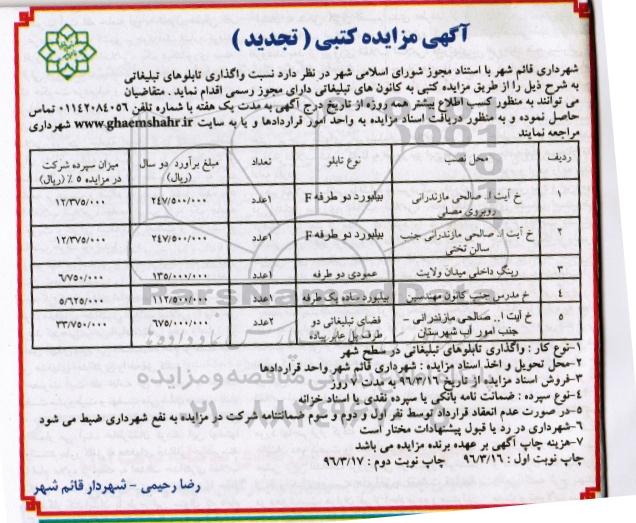 آگهی مزایده کتبی ( تجدید )
شهرداری قائم شهر با استناد مجوز شورای اسلامی شهر در نظر دارد نسبت واگذاری تابلوهای تبلیغاتی
به شرح ذیل را از طریق مزایده کتبی به کانون های تبلیغاتی دارای مجوز رسمی اقدام نماید . متقاضیان
می توانند به منظور کسب اطلاع بیشتر همه روزه از تاریخ درج آگهی به مدت یک هفته با شماره تلفن ۰۱۱۴۲۰۸۴۰۵۶ تماس
حاصل نموده و به منظور دریافت اسناد مزایده به واحد امور قراردادها و یا به سایت www.ghaemshahr.ir شهرداری
مراجعه نمایند
ردیف محل نصب نوع تابلو تعداد مبلغ برآورد دو سال (ریال) میزان سپرده شرکت در مزایده ۵ ٪ (ریال)
۱ خ آیت ا.. صالحی مازندرانی روبروی مصلی بیلبورد دو طرفه F ۱عدد ۲۴۷/۵۰۰/۰۰۰ ۱۲/۳۷۵/۰۰۰
۲ خ آیت ا.. صالحی مازندرانی جنب سالن تختی بیلبورد دو طرفه F ۱عدد ۲۴۷/۵۰۰/۰۰۰ ۱۲/۳۷۵/۰۰۰
۳ رینگ داخلی میدان ولایت عمودی دو طرفه ۱عدد ۱۳۵/۰۰۰/۰۰۰ ۶/۷۵۰/۰۰۰
۴ خ مدرس جنب کانون مهندسین بیلبورد ساده یک طرفه ۱عدد ۱۱۲/۵۰۰/۰۰۰ ۵/۶۲۵/۰۰۰
۵ خ آیت ا.. صالحی مازندرانی – جنب امور آب شهرستان فضای تبلیغاتی دو طرف پل عابر پیاده ۲عدد ۶۷۵/۰۰۰/۰۰۰ ۳۳/۷۵۰/۰۰۰
۱-نوع کار : واگذاری تابلوهای تبلیغاتی در سطح شهر
۲-محل تحویل و اخذ اسناد مزایده : شهرداری قائم شهر واحد قراردادها
۳-فروش اسناد مزایده از تاریخ ۹۶/۳/۱۶ به مدت ۱۰ روز
۴-نوع سپرده : ضمانت نامه بانکی یا سپرده نقدی یا اسناد خزانه
۵-در صورت عدم انعقاد قرارداد توسط نفر اول و دوم و سوم ضمانتنامه شرکت در مزایده به نفع شهرداری ضبط می شود
۶-شهرداری در رد یا قبول پیشنهادات مختار است
۷-هزینه چاپ آگهی بر عهده برنده مزایده می باشد
چاپ نوبت اول : ۹۶/۳/۱۶ چاپ نوبت دوم : ۹۶/۳/۱۷
رضا رحیمی – شهردار قائم شهر
ParsNamadData